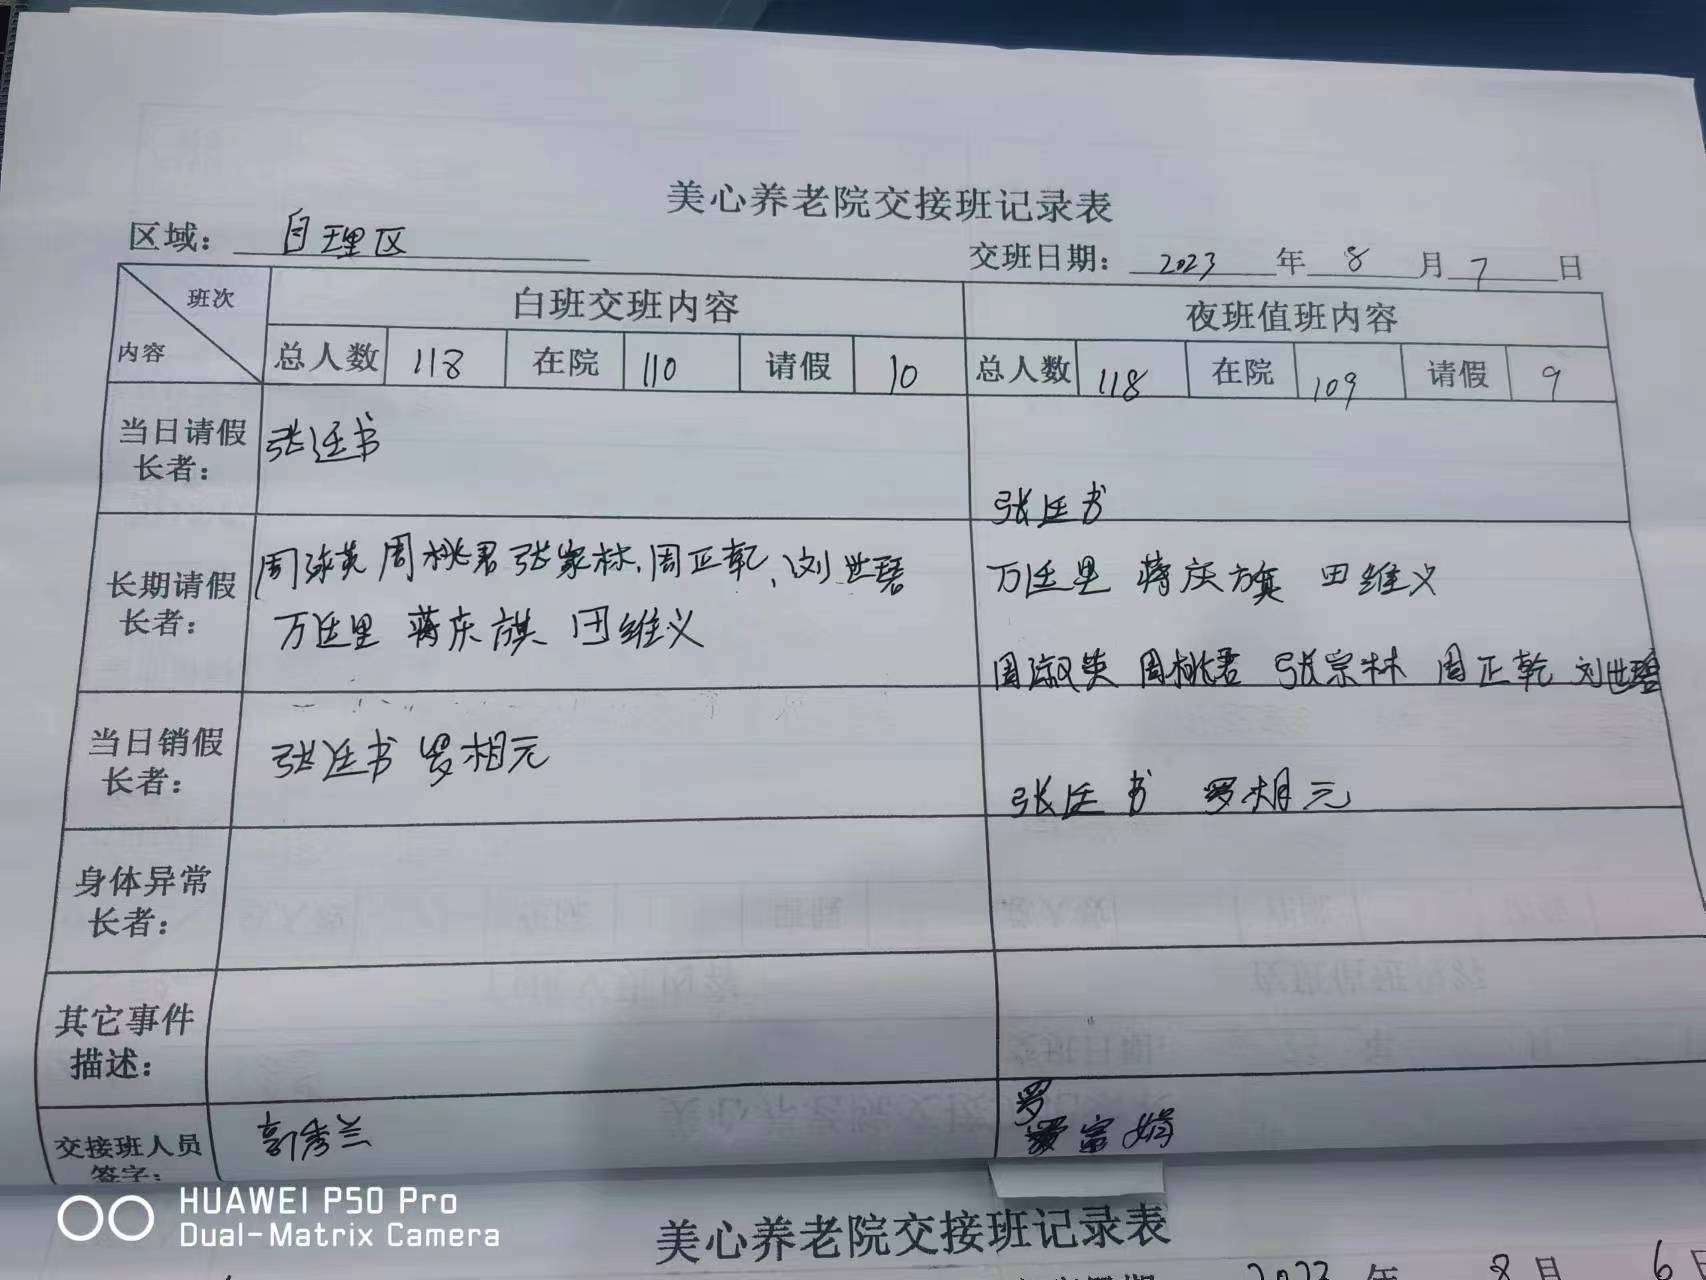 美心养老院交接班记录表
区域： 自理区
交班日期： 2023 年 8 月 7 日
班次
内容
白班交班内容
夜班值班内容
总人数 118 在院 110 请假 10
总人数 118 在院 109 请假 9
当日请假
长者：
张廷书
张廷书
长期请假
长者：
周淑英 周桃君 张宗林、周正乾、刘世碧
万廷里 蒋庆旗 田维义
万廷里 蒋庆旗 田维义
周淑英 周桃君 张宗林 周正乾 刘世碧
当日销假
长者：
张廷书 罗相元
张廷书 罗相元
身体异常
长者：
其它事件
描述：
交接班人员
签字：
郭秀兰
罗
富娟
HUAWEI P50 Pro
Dual-Matrix Camera
美心养老院交接班记录表
2023 年 8月 6日